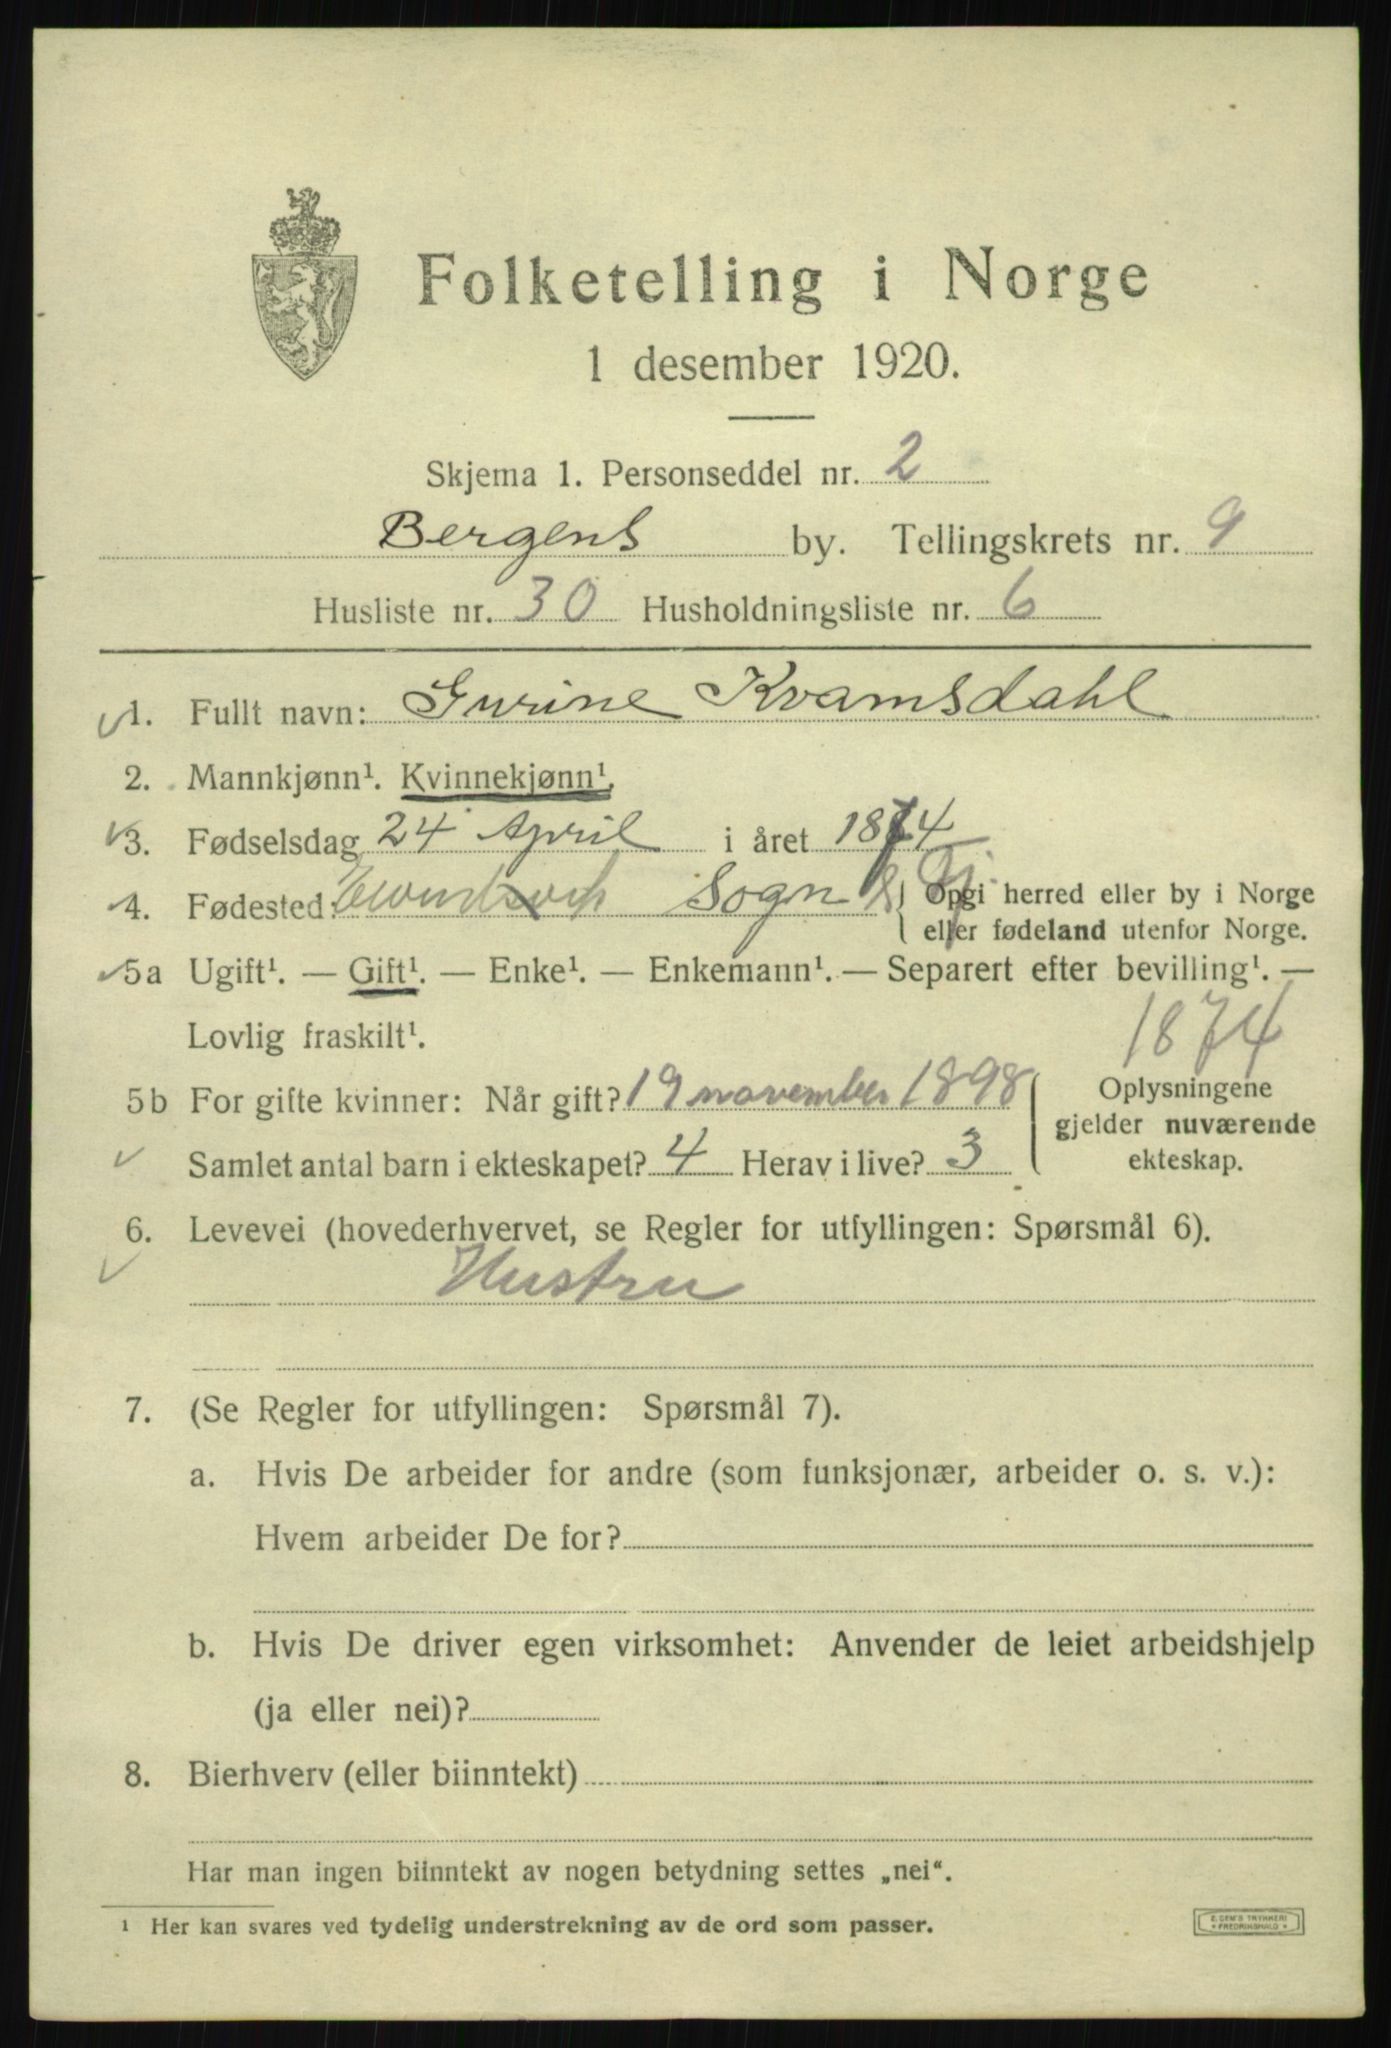 Folketelling i Norge
1 desember 1920.
Skjema 1. Personseddel nr. 2
Bergens by. Tellingskrets nr. 9
Husliste nr. 30 Husholdningsliste nr. 6
1. Fullt navn: Gurine Kvamsdahl
2. Mannkjønn¹. Kvinnekjønn¹.
3. Fødselsdag 24 April i året 1874
4. Fødested: Sogn & Fj. Opgi herred eller by i Norge
eller fødeland utenfor Norge.
5a Ugift¹. — Gift¹. — Enke¹. — Enkemann¹. — Separert efter bevilling¹. —
Lovlig fraskilt¹. 1874
5b For gifte kvinner: Når gift? 19 november 1898 Oplysningene
gjelder nuværende
Samlet antal barn i ekteskapet? 4 Herav i live? 3 ekteskap.
6. Levevei (hovederhvervet, se Regler for utfyllingen: Spørsmål 6).
Hustru
7. (Se Regler for utfyllingen: Spørsmål 7).
a. Hvis De arbeider for andre (som funksjonær, arbeider o. s. v.):
Hvem arbeider De for?
b. Hvis De driver egen virksomhet: Anvender de leiet arbeidshjelp
(ja eller nei)?
8. Bierhverv (eller biinntekt)
Har man ingen biinntekt av nogen betydning settes „nei“.
¹ Her kan svares ved tydelig understrekning av de ord som passer.
E. SEM'S TRYKKERI
FREDRIKSHALD